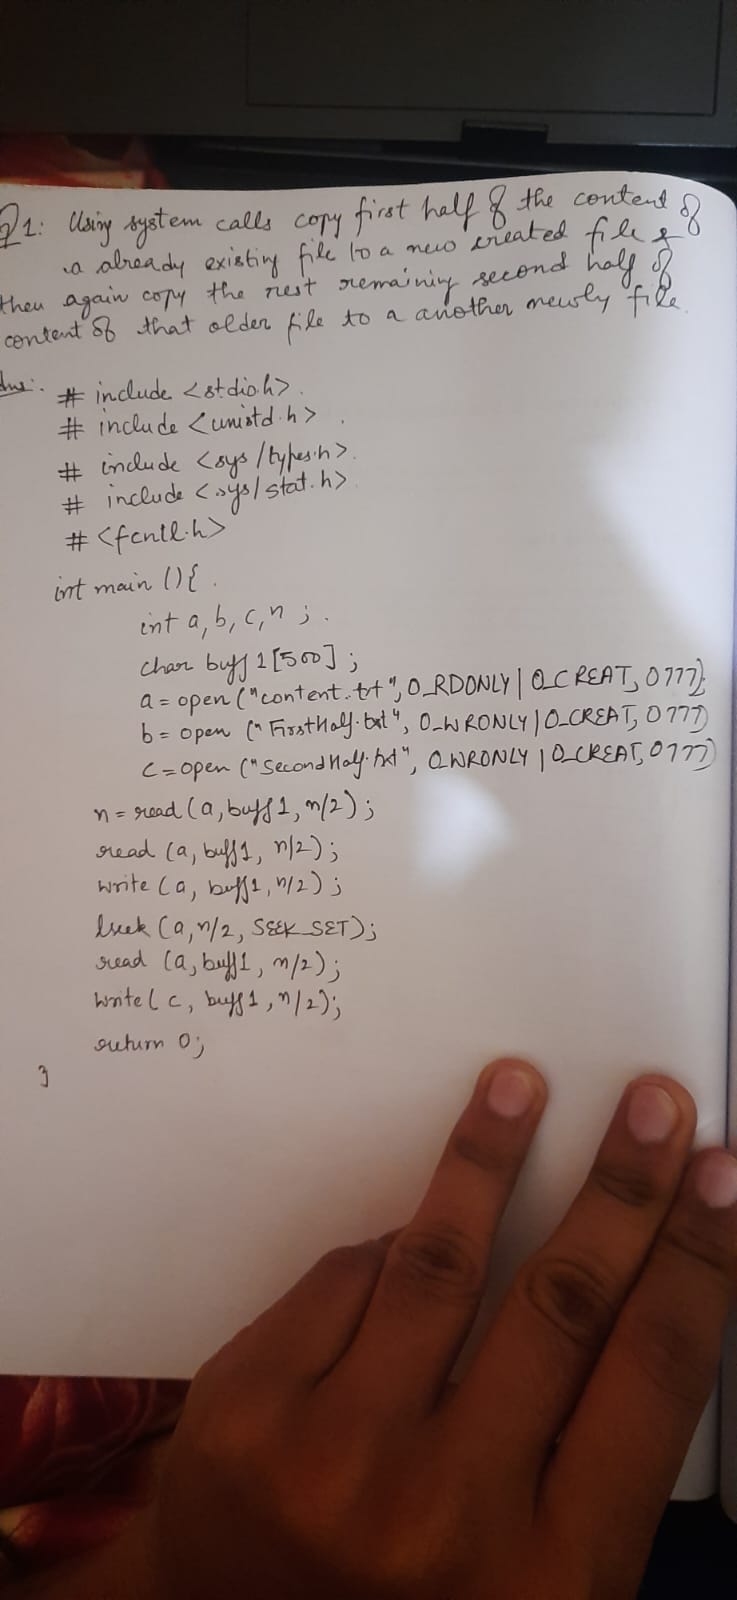 Q1: Using system calls copy first half of the content of
a already existing file to a new created file &
then again copy the rest remaining second half of
content of that older file to a another newly file.
Ans:.
# include <stdio.h>.
# include <unistd.h>.
# include <sys/types.h>.
# include <sys/stat.h>
# <fcntl.h>
int main () {.
int a, b, c, n ;.
char buff 1 [500] ;
a = open ("content.txt", O_RDONLY | O_CREAT, 0777);
b = open (" FirstHalf.txt", O_WRONLY | O_CREAT, 0777)
c = open ("SecondHalf.txt", O_WRONLY | O_CREAT, 0777)
n = read (a, buff 1, n/2) ;
read (a, buff1, n/2) ;
write (a, buff1, n/2) ;
lseek (a, n/2, SEEK_SET);
read (a, buff1, n/2) ;
write ( c, buff 1, n/2);
return 0;
}